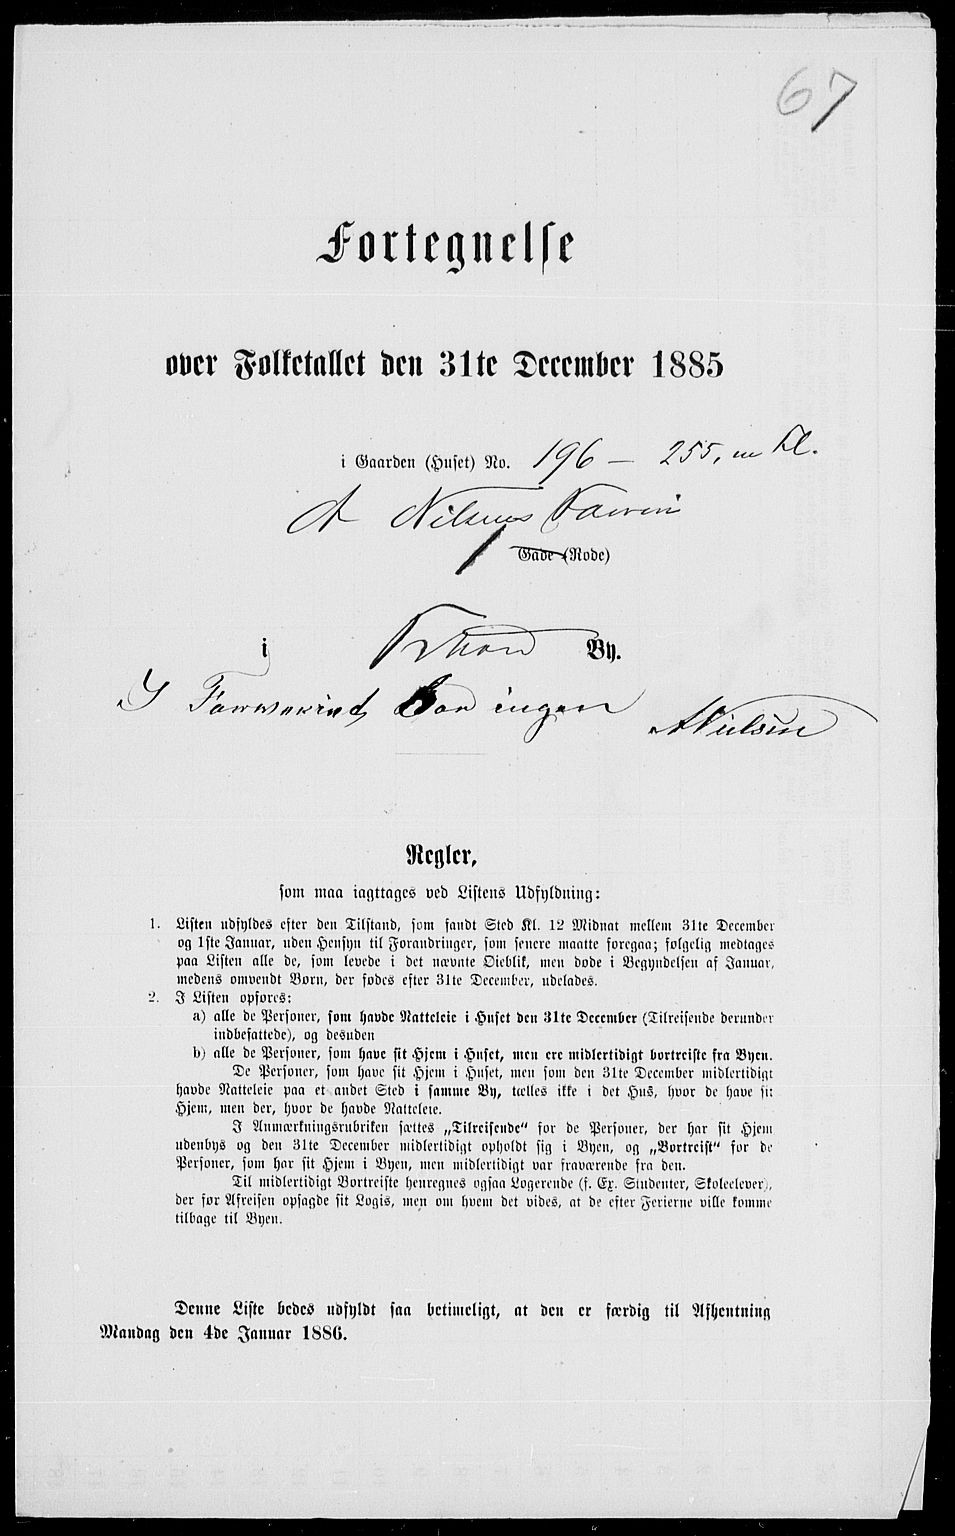 67
Fortegnelse
over Folketallet den 31te December 1885
i Gaarden (Huset) No. 196 — 255, m Fl.
A Nilsens
Gade (Rode)
i By.
I Bor ingen
ANielsen
Regler,
som maa iagttages ved Listens Udfyldning:
1. Listen udfyldes efter den Tilstand, som fandt Sted Kl. 12 Midnat mellem 31te December
og 1ste Januar, uden Hensyn til Forandringer, som senere maatte foregaa; følgelig medtages
paa Listen alle de, som levede i det nævnte Øieblik, men døde i Begyndelsen af Januar,
medens omvendt Børn, der fødes efter 31te December, udelades.
2. I Listen opføres:
a) alle de Personer, som havde Natteleie i Huset den 31te December (Tilreisende derunder
indbefattede), og desuden
b) alle de Personer, som have sit Hjem i Huset, men ere midlertidigt bortreiste fra Byen.
De Personer, som have sit Hjem i Huset, men som den 31te December midlertidigt
havde Natteleie paa et andet Sted i samme By, tælles ikke i det Hus, hvor de have sit
Hjem, men der, hvor de havde Natteleie.
I Anmærkningsrubriken sættes „Tilreisende“ for de Personer, der har sit Hjem
udenbys og den 31te December midlertidigt opholdt sig i Byen, og „Bortreist“ for de
Personer, som har sit Hjem i Byen, men midlertidigt var fraværende fra den.
Til midlertidigt Bortreiste henregnes ogsaa Logerende (f. Ex. Studenter, Skoleelever),
der før Afreisen opsagde sit Logis, men om hvem det vides, at de efter Ferierne ville komme
tilbage til Byen.
Denne Liste bedes udfyldt saa betimeligt, at den er færdig til Afhentning
Mandag den 4de Januar 1886.